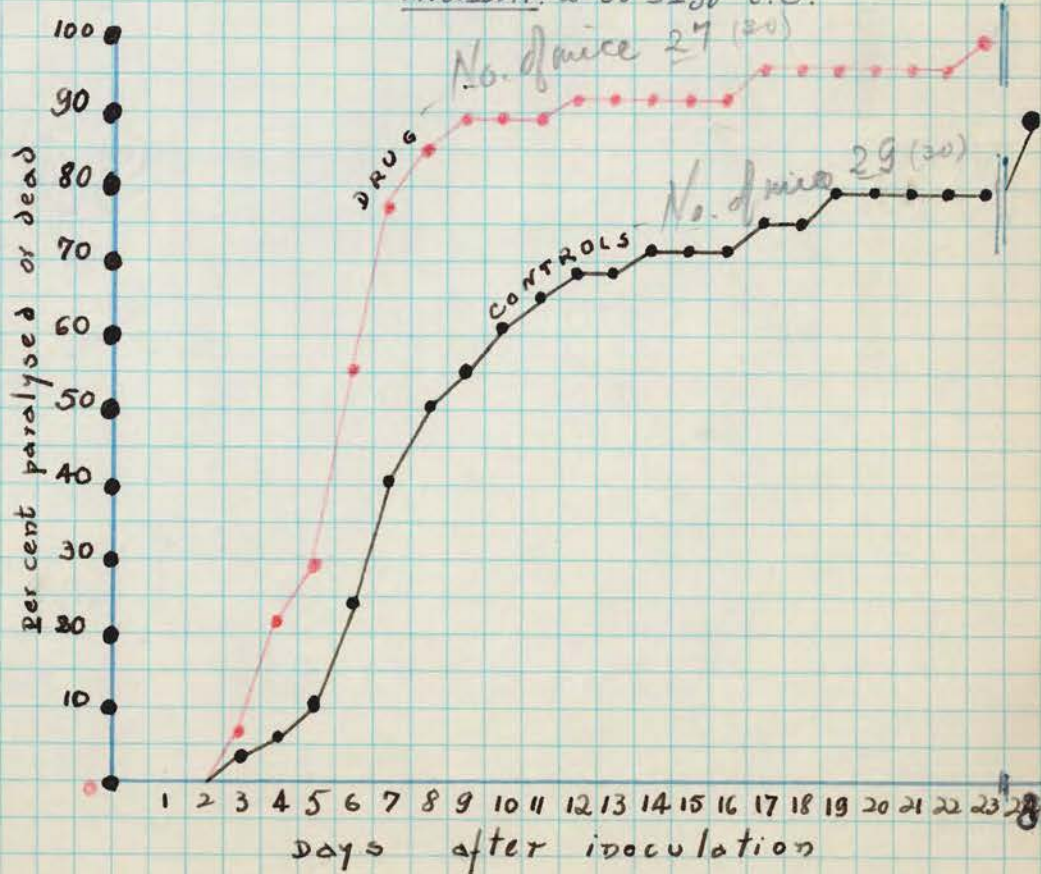 No. of mice 27 (30)
DRUG
No. of mice 29 (30)
CONTROLS
Per cent paralysed or dead
100
90
80
70
60
50
40
30
20
10
1 2 3 4 5 6 7 8 9 10 11 12 13 14 15 16 17 18 19 20 21 22 23
Days after inoculation